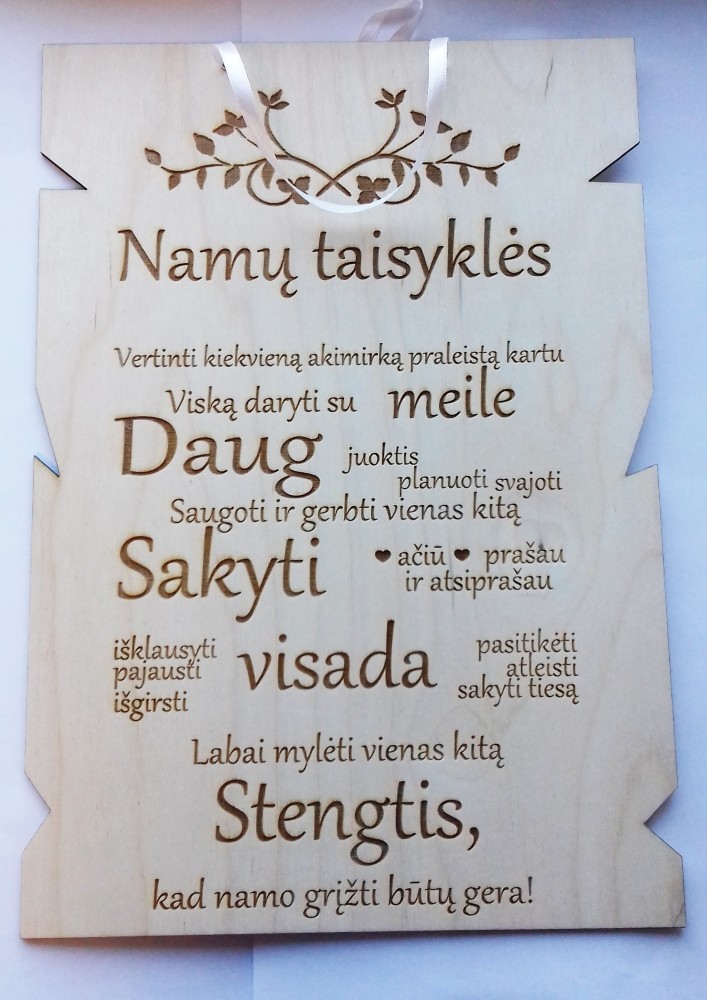 Namų taisyklės
Vertinti kiekvieną akimirką praleistą kartu
Viską daryti su meile
Daug juoktis
planuoti svajoti
Saugoti ir gerbti vienas kitą
Sakyti ♥ ačiū ♥ prašau
ir atsiprašau
išklausyti
pajausti
išgirsti
visada
pasitikėti
atleisti
sakyti tiesą
Labai mylėti vienas kitą
Stengtis,
kad namo grįžti būtų gera!